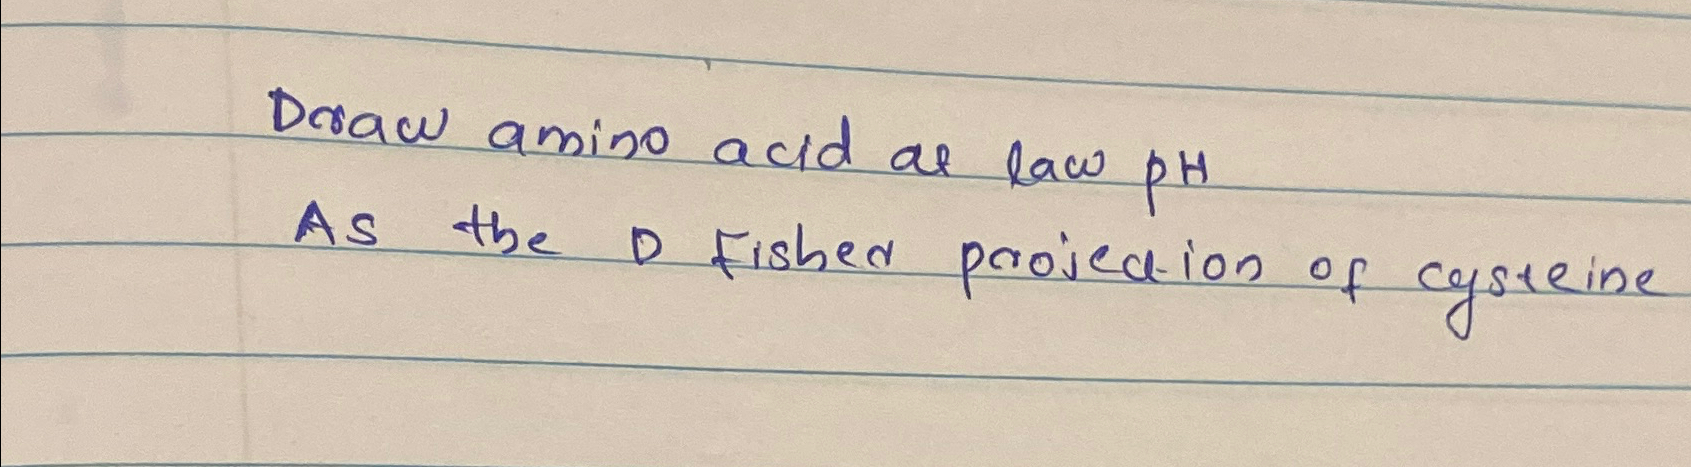 Draw amino acid at law pH
As the D Fisher projection of cysteine